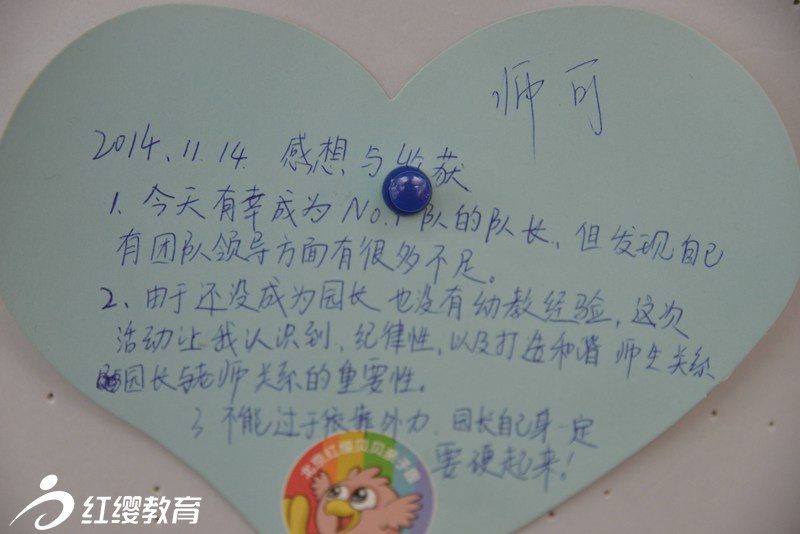 师可
2014.11.14. 感想与收获
1. 今天有幸成为No.1队的队长，但发现自己
有团队领导方面有很多不足。
2、由于还没成为园长 也没有幼教经验，这次
活动让我认识到，纪律性，以及打造和谐 师生关系
园长与老师关系的重要性。
3 不能过于依靠外力，园长自己身一定
要硬起来！
北京红缨贝贝亲子园
红缨教育